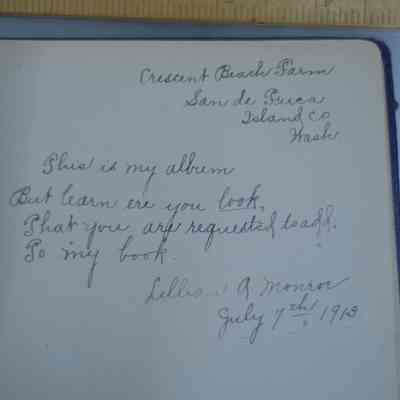 Crescent Beach Farm
San de Fuca
Island Co
Wash
This is my album
But learn ere you look,
That you are requested to add.
To my book.
Lillian A Monroe
July 7th 1913